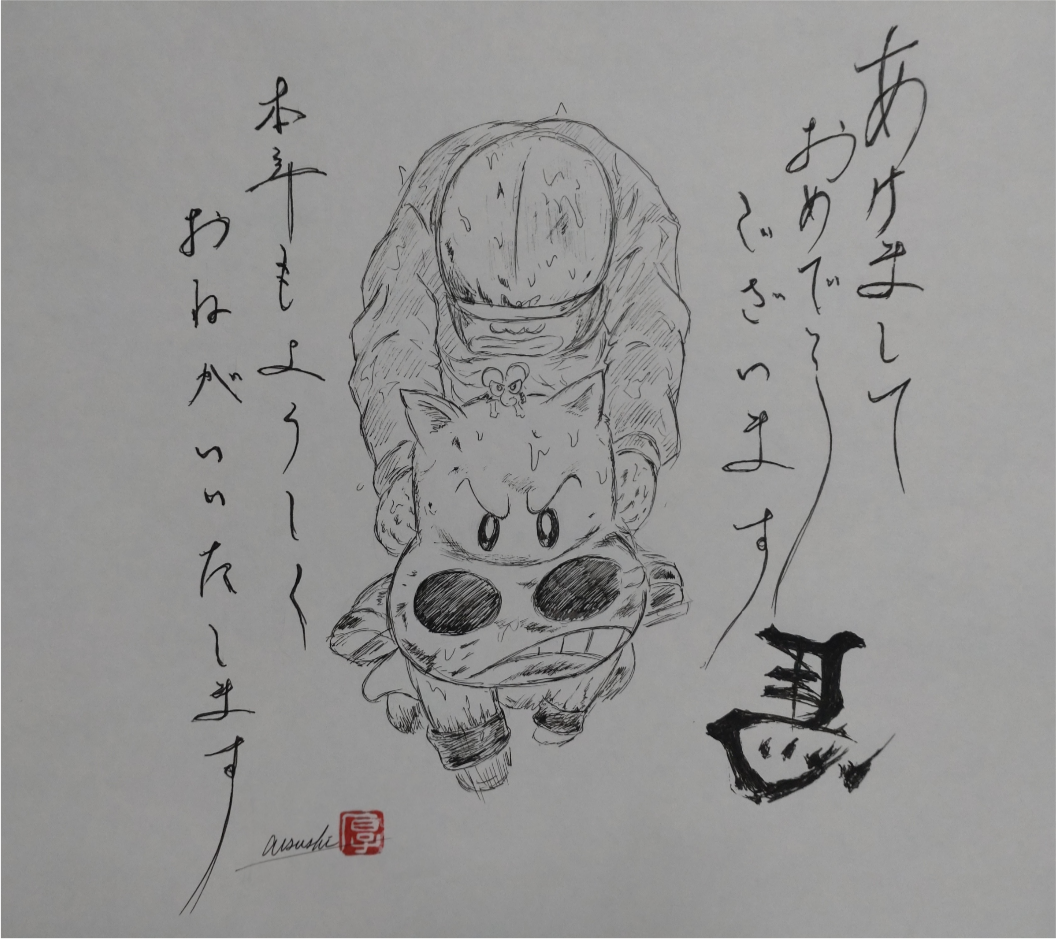 あけまして
おめでとう
ございます
馬
本年もよろしく
おねがいいたします
atsushi